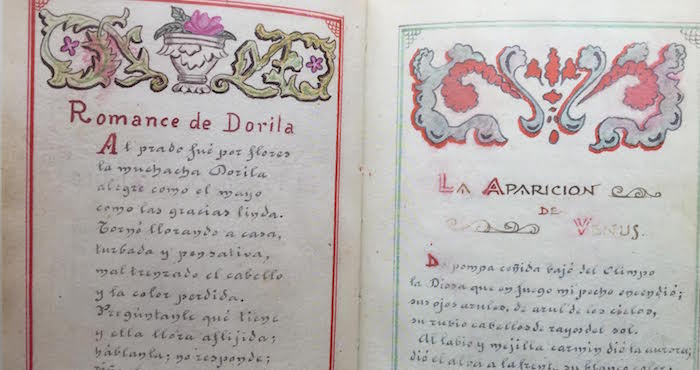 Romance de Dorila
Al prado fué por flores
la muchacha Dorila
alegre como el mayo
como las gracias linda.
Tornó llorando a casa,
turbada y pensativa,
mal trenzado el cabello
y la color perdida.
Pregúntanle qué tiene
y ella llora aflijida;
háblanla; no responde;
LA APARICION
DE VENUS.
De pompa ceñida bajó del Olimpo
la Diosa que en fuego mi pecho encendió;
sus ojos azules, de azul de los cielos,
su rubio cabellos de rayos del sol.
Al labio y mejilla carmín dió la aurora;
dió el alva a la frente su blanco color;